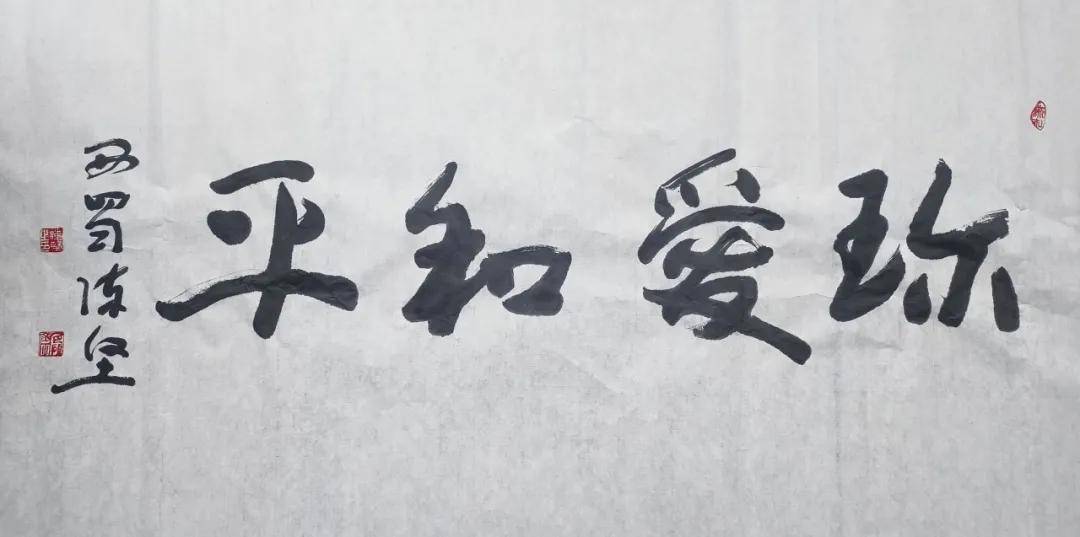 珎愛和平
西蜀陈坚